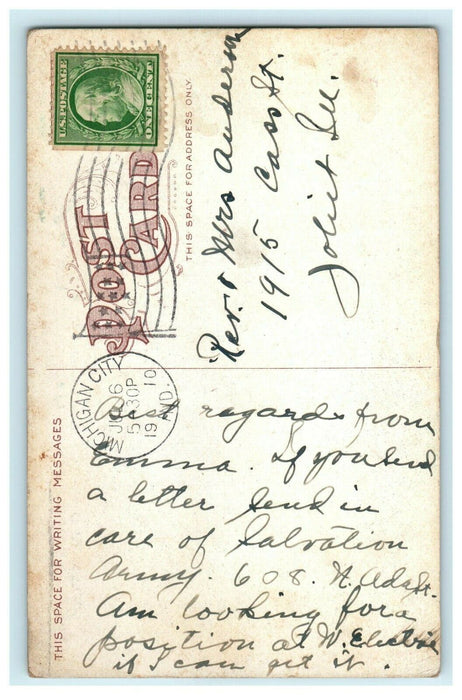 U.S. POSTAGE
ONE CENT
POST CARD
THIS SPACE FOR ADDRESS ONLY
Rev. & Mrs Anderson
1915 Cass St.
Joliet Ill.
MICHIGAN CITY
6
5 30P
1910
IND.
THIS SPACE FOR WRITING MESSAGES
Best regards from
Emma. If you send
a letter send in
care of Salvation
Army. 608. N. Ada St.
Am looking for a
position at W. Electric
if I can get it.